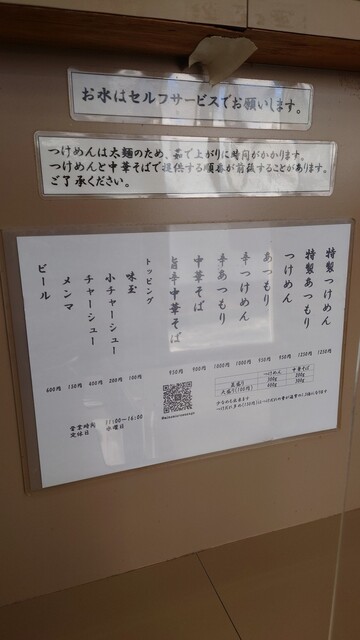 お水はセルフサービスでお願いします。
つけめんは太麺のため、茹で上がりに時間がかかります。
つけめんと中華そばで提供する順番が前後することがあります。
ご了承ください。
特製つけめん 1250円
特製あつもり 1250円
つけめん 950円
あつもり 950円
辛つけめん 1000円
辛あつもり 1000円
中華そば 900円
旨辛中華そば 950円
トッピング
味玉 100円
小チャーシュー 200円
チャーシュー 400円
メンマ 150円
ビール 600円
つけめん 中華そば
並盛り 300g 200g
大盛り(100円) 600g 300g
営業時間 11:00~16:00
定休日 水曜日